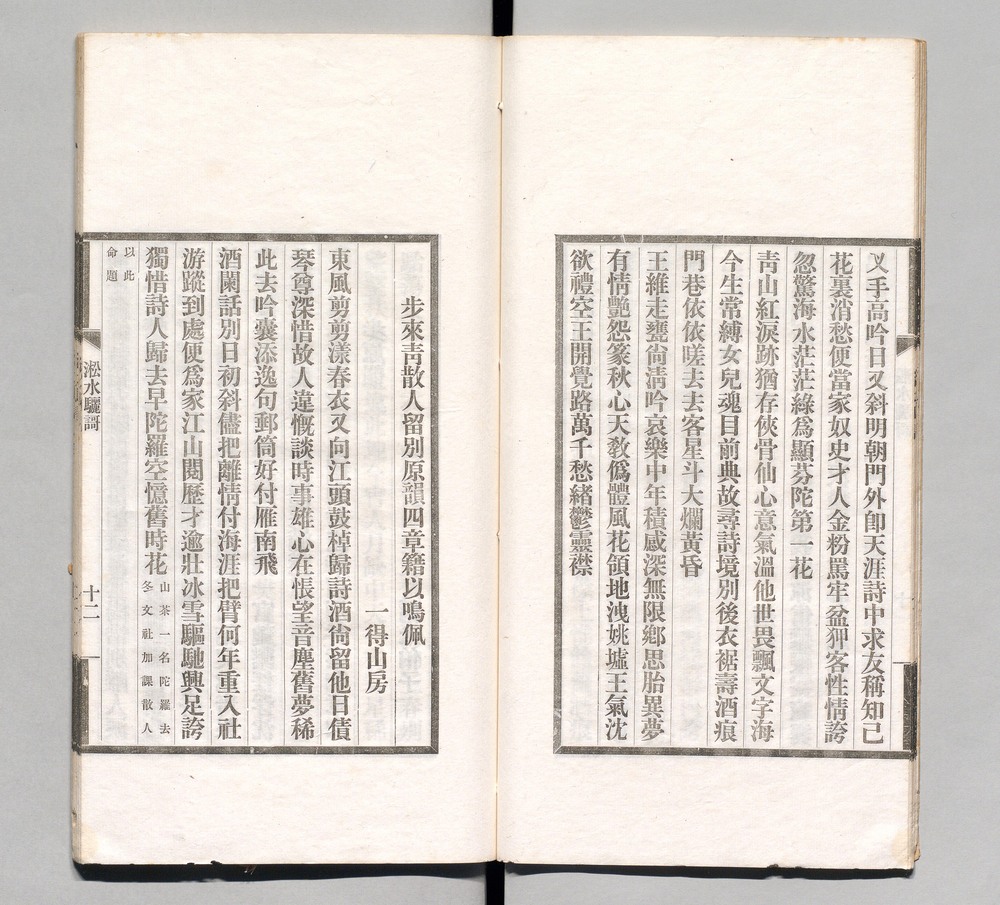 叉手高吟日又斜明朝門外卽天涯詩中求友稱知己
花裏消愁便當家奴史才人金粉罵牢盆狎客性情誇
忽驚海水茫茫綠爲顯芬陀第一花
靑山紅淚跡猶存俠骨仙心意氣溫他世畏飄文字海
今生常縛女兒魂目前典故尋詩境別後衣裾壽酒痕
門巷依依嗟去去客星斗大爛黃昏
王維走甕尙淸吟哀樂中年積感深無限鄕思胎異夢
有情艷怨篆秋心天敎僞體風花領地洩姚墟王氣沈
欲禮空王開覺路萬千愁緖鬱靈襟
步來靑散人留別原韻四章籍以鳴佩
一得山房
東風剪剪漾春衣又向江頭鼓棹歸詩酒尙留他日債
琴尊深惜故人違慨談時事雄心在悵望音塵舊夢稀
此去吟囊添逸句郵筒好付雁南飛
酒闌話別日初斜儘把離情付海涯把臂何年重入社
游蹤到處便爲家江山閱歷才逾壯冰雪驅馳興足誇
獨惜詩人歸去早陀羅空憶舊時花
山茶一名陀羅去
冬文社加課散人
以此
命題
淞水驪謌
十二